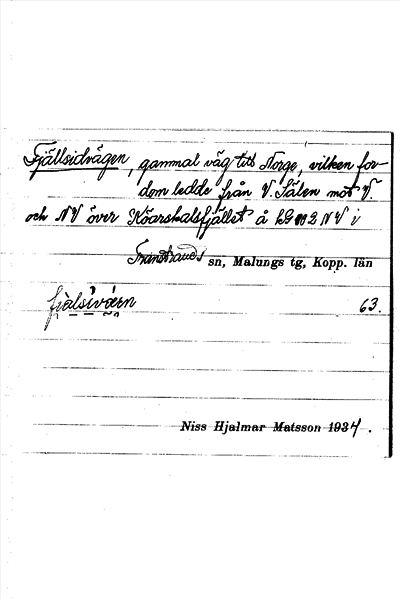 Fjällsidvägen, gammal väg till Norge, vilken for-
dom ledde från V. Sälen mot V.
och NV över Köarskalsfjället å 102 NV i
Transtrands sn, Malungs tg, Kopp. län
fjälsivä́ern 63.
Niss Hjalmar Matsson 1934.